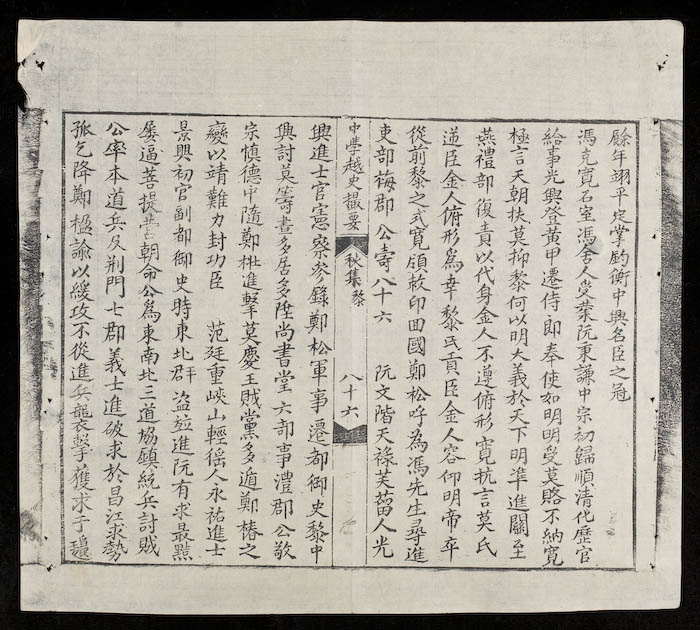 餘年翊平定掌鈞衡中興名臣之冠
馮克寬石室馮舍人受業阮秉謙中宗初歸順清化歷官
給事光興登黃甲遷侍郎奉使如明明受莫賂不納寬
極言天朝扶莫抑黎何以明大義於天下明準進關至
燕禮部復責以代身金人不遵俯形寬抗言莫氏
逆臣金人俯形為幸黎氏貢臣金人容仰明帝卒
從前黎之式寬頒敕印回國鄭松呼為馮先生尋進
吏部梅郡公壽八十六 阮文階天祿芙蒥人光
中學越史撮要 秋集 黎 八十六
興進士官憲察參錄鄭松軍事遷都御史黎中
興討莫籌畫多居多陞尚書堂六部事澧郡公敬
宗慎德中隨鄭杜進擊莫慶王賊黨多遁鄭椿之
變以靖難力封功臣 范廷重峽山輕徭人永祐進士
景興初官副都御史時東北群盜竝進阮有求最黠
屡逼菩提營朝命公為東南北三道協鎮統兵討賊
公率本道兵及荆門七郡義士進破求於昌江求勢
孤乞降鄭楹諭以緩攻不從進兵襲擊獲求于